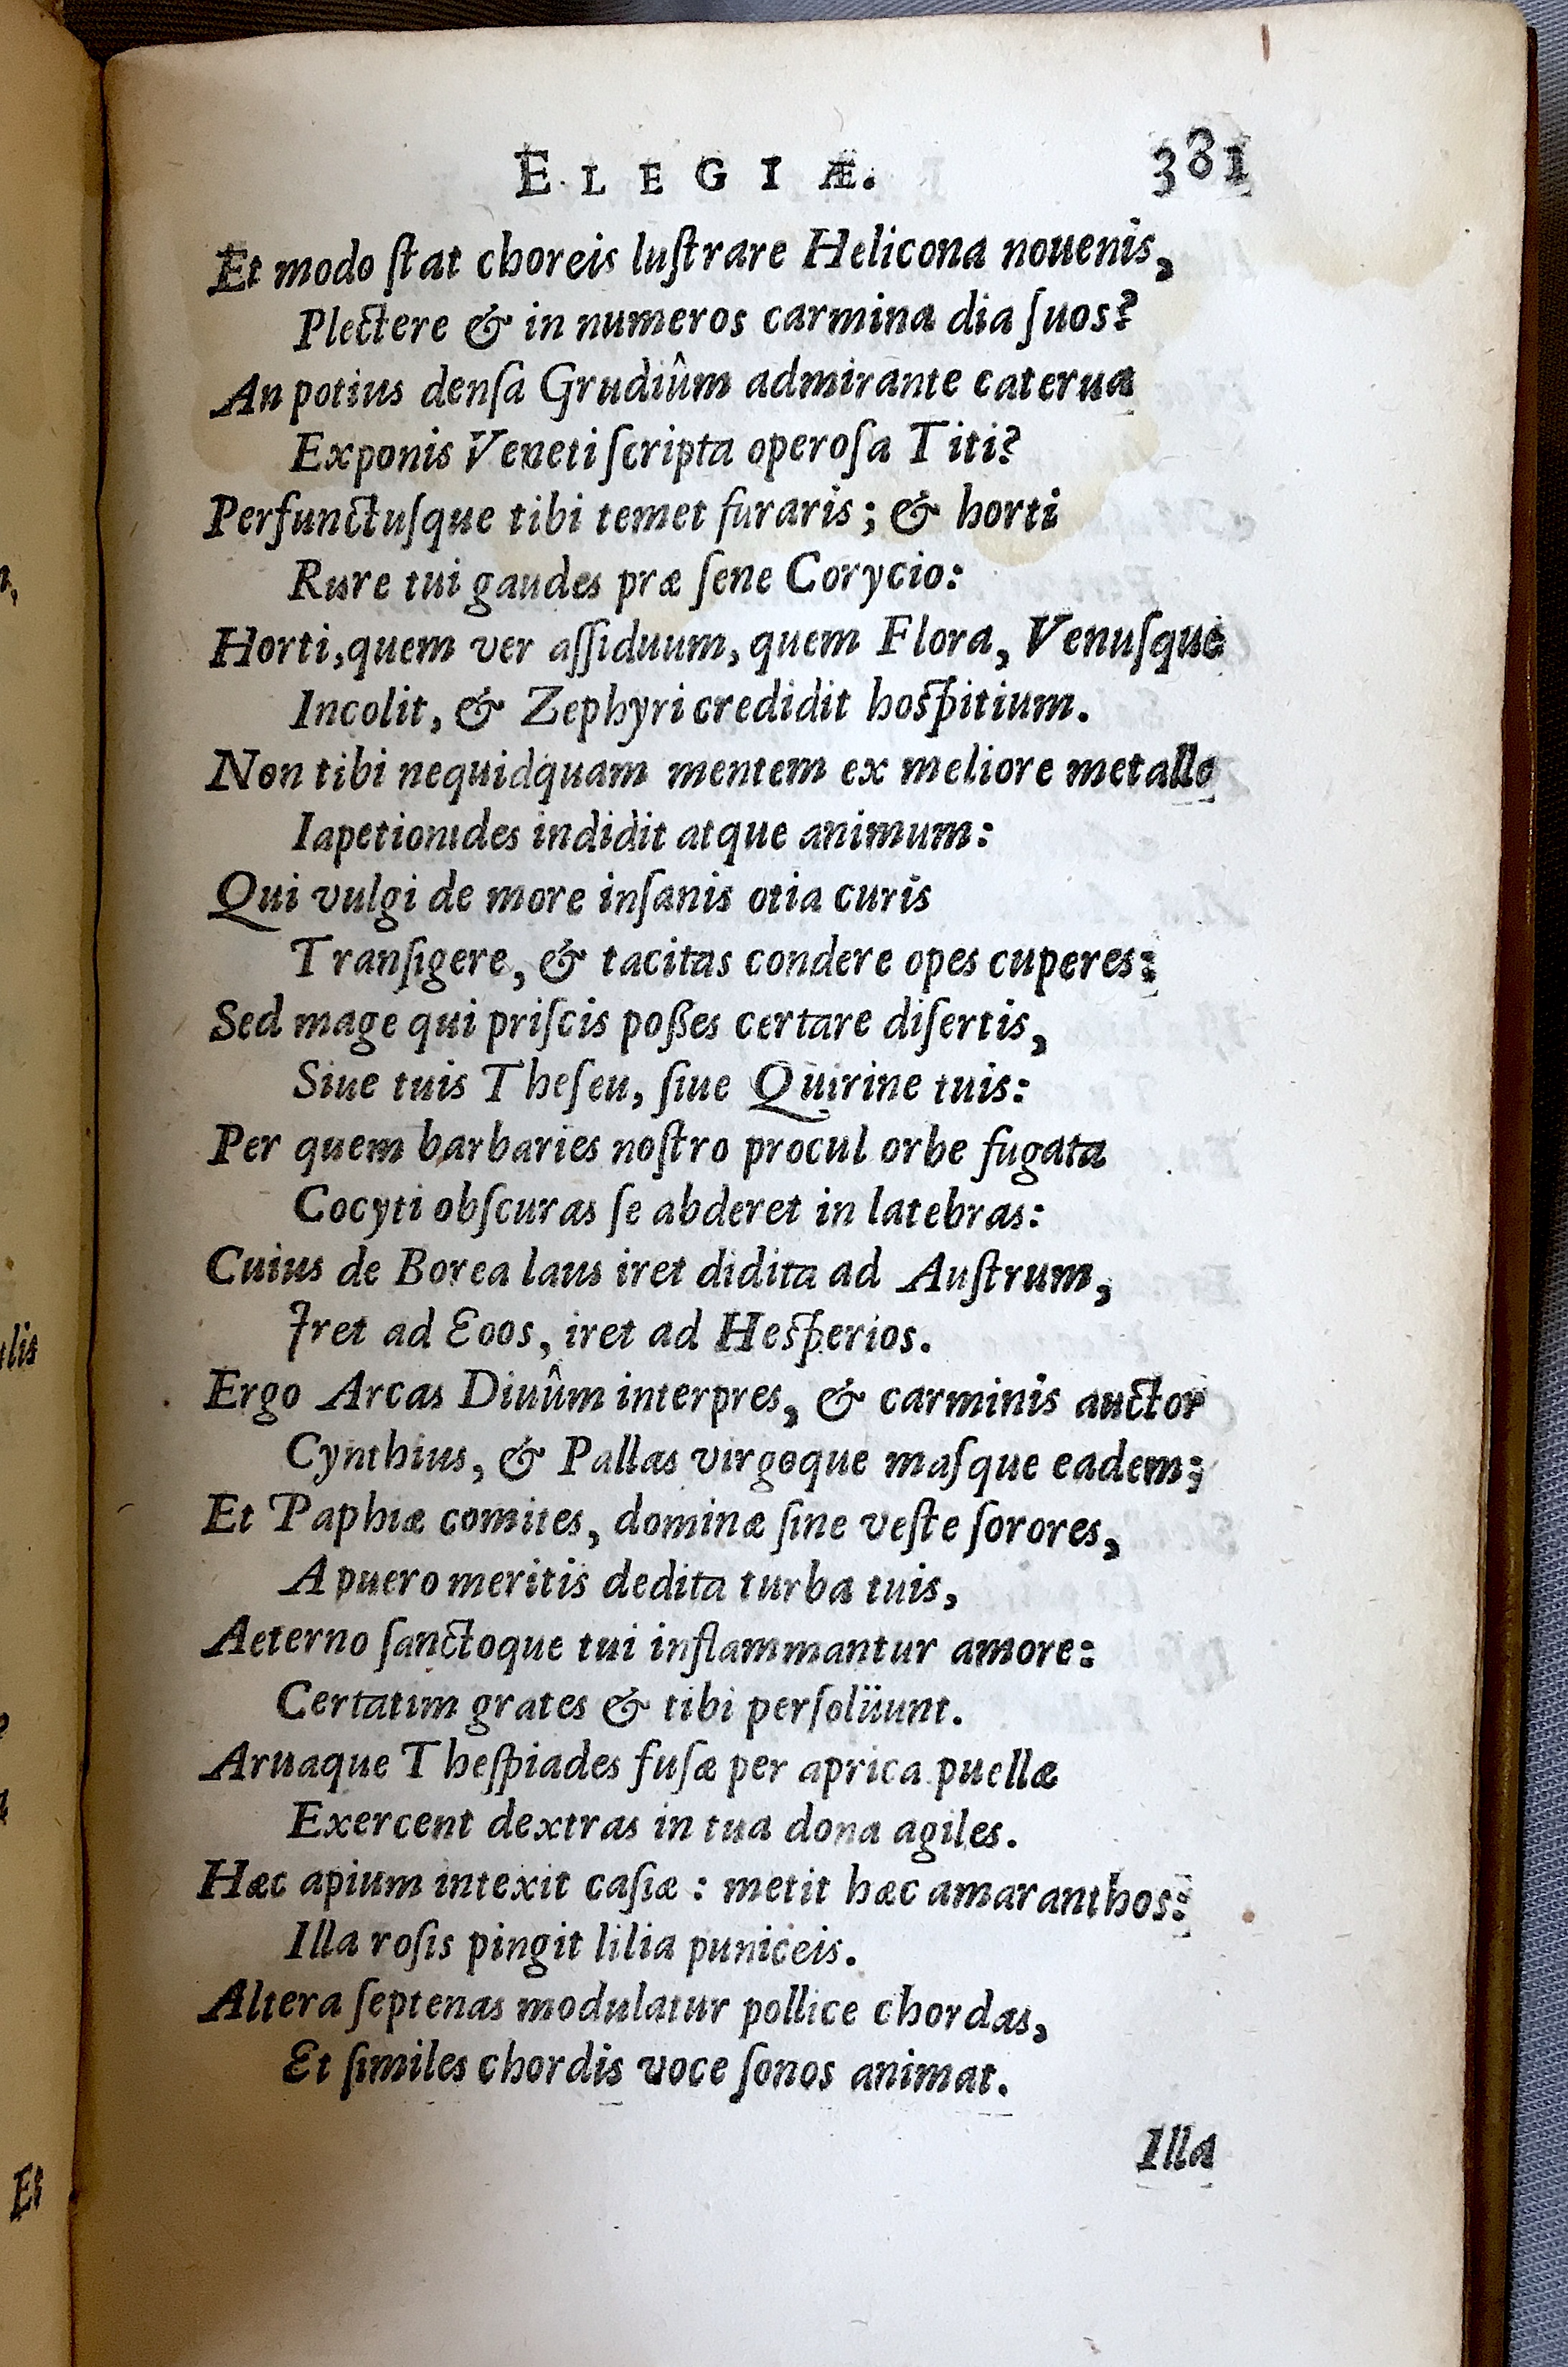 ELEGIÆ. 381
Et modo ſtat choreis luſtrare Helicona nouenis,
Plectere & in numeros carmina dia ſuos?
An potius denſa Grudiûm admirante caterua
Exponis Veneti ſcripta operoſa Titi?
Perfunctuſque tibi temet furaris; & horti
Rure tui gaudes præ ſene Corycio:
Horti, quem ver aſſiduum, quem Flora, Venuſque
Incolit, & Zephyri credidit hoſpitium.
Non tibi nequidquam mentem ex meliore metallo
Iapetionides indidit atque animum:
Qui vulgi de more inſanis otia curis
Tranſigere, & tacitas condere opes cuperes:
Sed mage qui priſcis poßes certare diſertis,
Siue tuis Theſeu, ſiue Quirine tuis:
Per quem barbaries noſtro procul orbe fugata
Cocyti obſcuras ſe abderet in latebras:
Cuius de Borea laus iret didita ad Auſtrum,
Iret ad Eoos, iret ad Heſperios.
Ergo Arcas Diuûm interpres, & carminis auctor
Cynthius, & Pallas virgoque maſque eadem;
Et Paphiæ comites, dominæ ſine veſte ſorores,
A puero meritis dedita turba tuis,
Aeterno ſanctoque tui inflammantur amore:
Certatim grates & tibi perſolüunt.
Aruaque Theſpiades fuſæ per aprica puellæ
Exercent dextras in tua dona agiles.
Hæc apium intexit caſiæ: metit hæc amaranthos:
Illa roſis pingit lilia puniceis.
Altera ſeptenas modulatur pollice chordas,
Et ſimiles chordis voce ſonos animat.
Illa